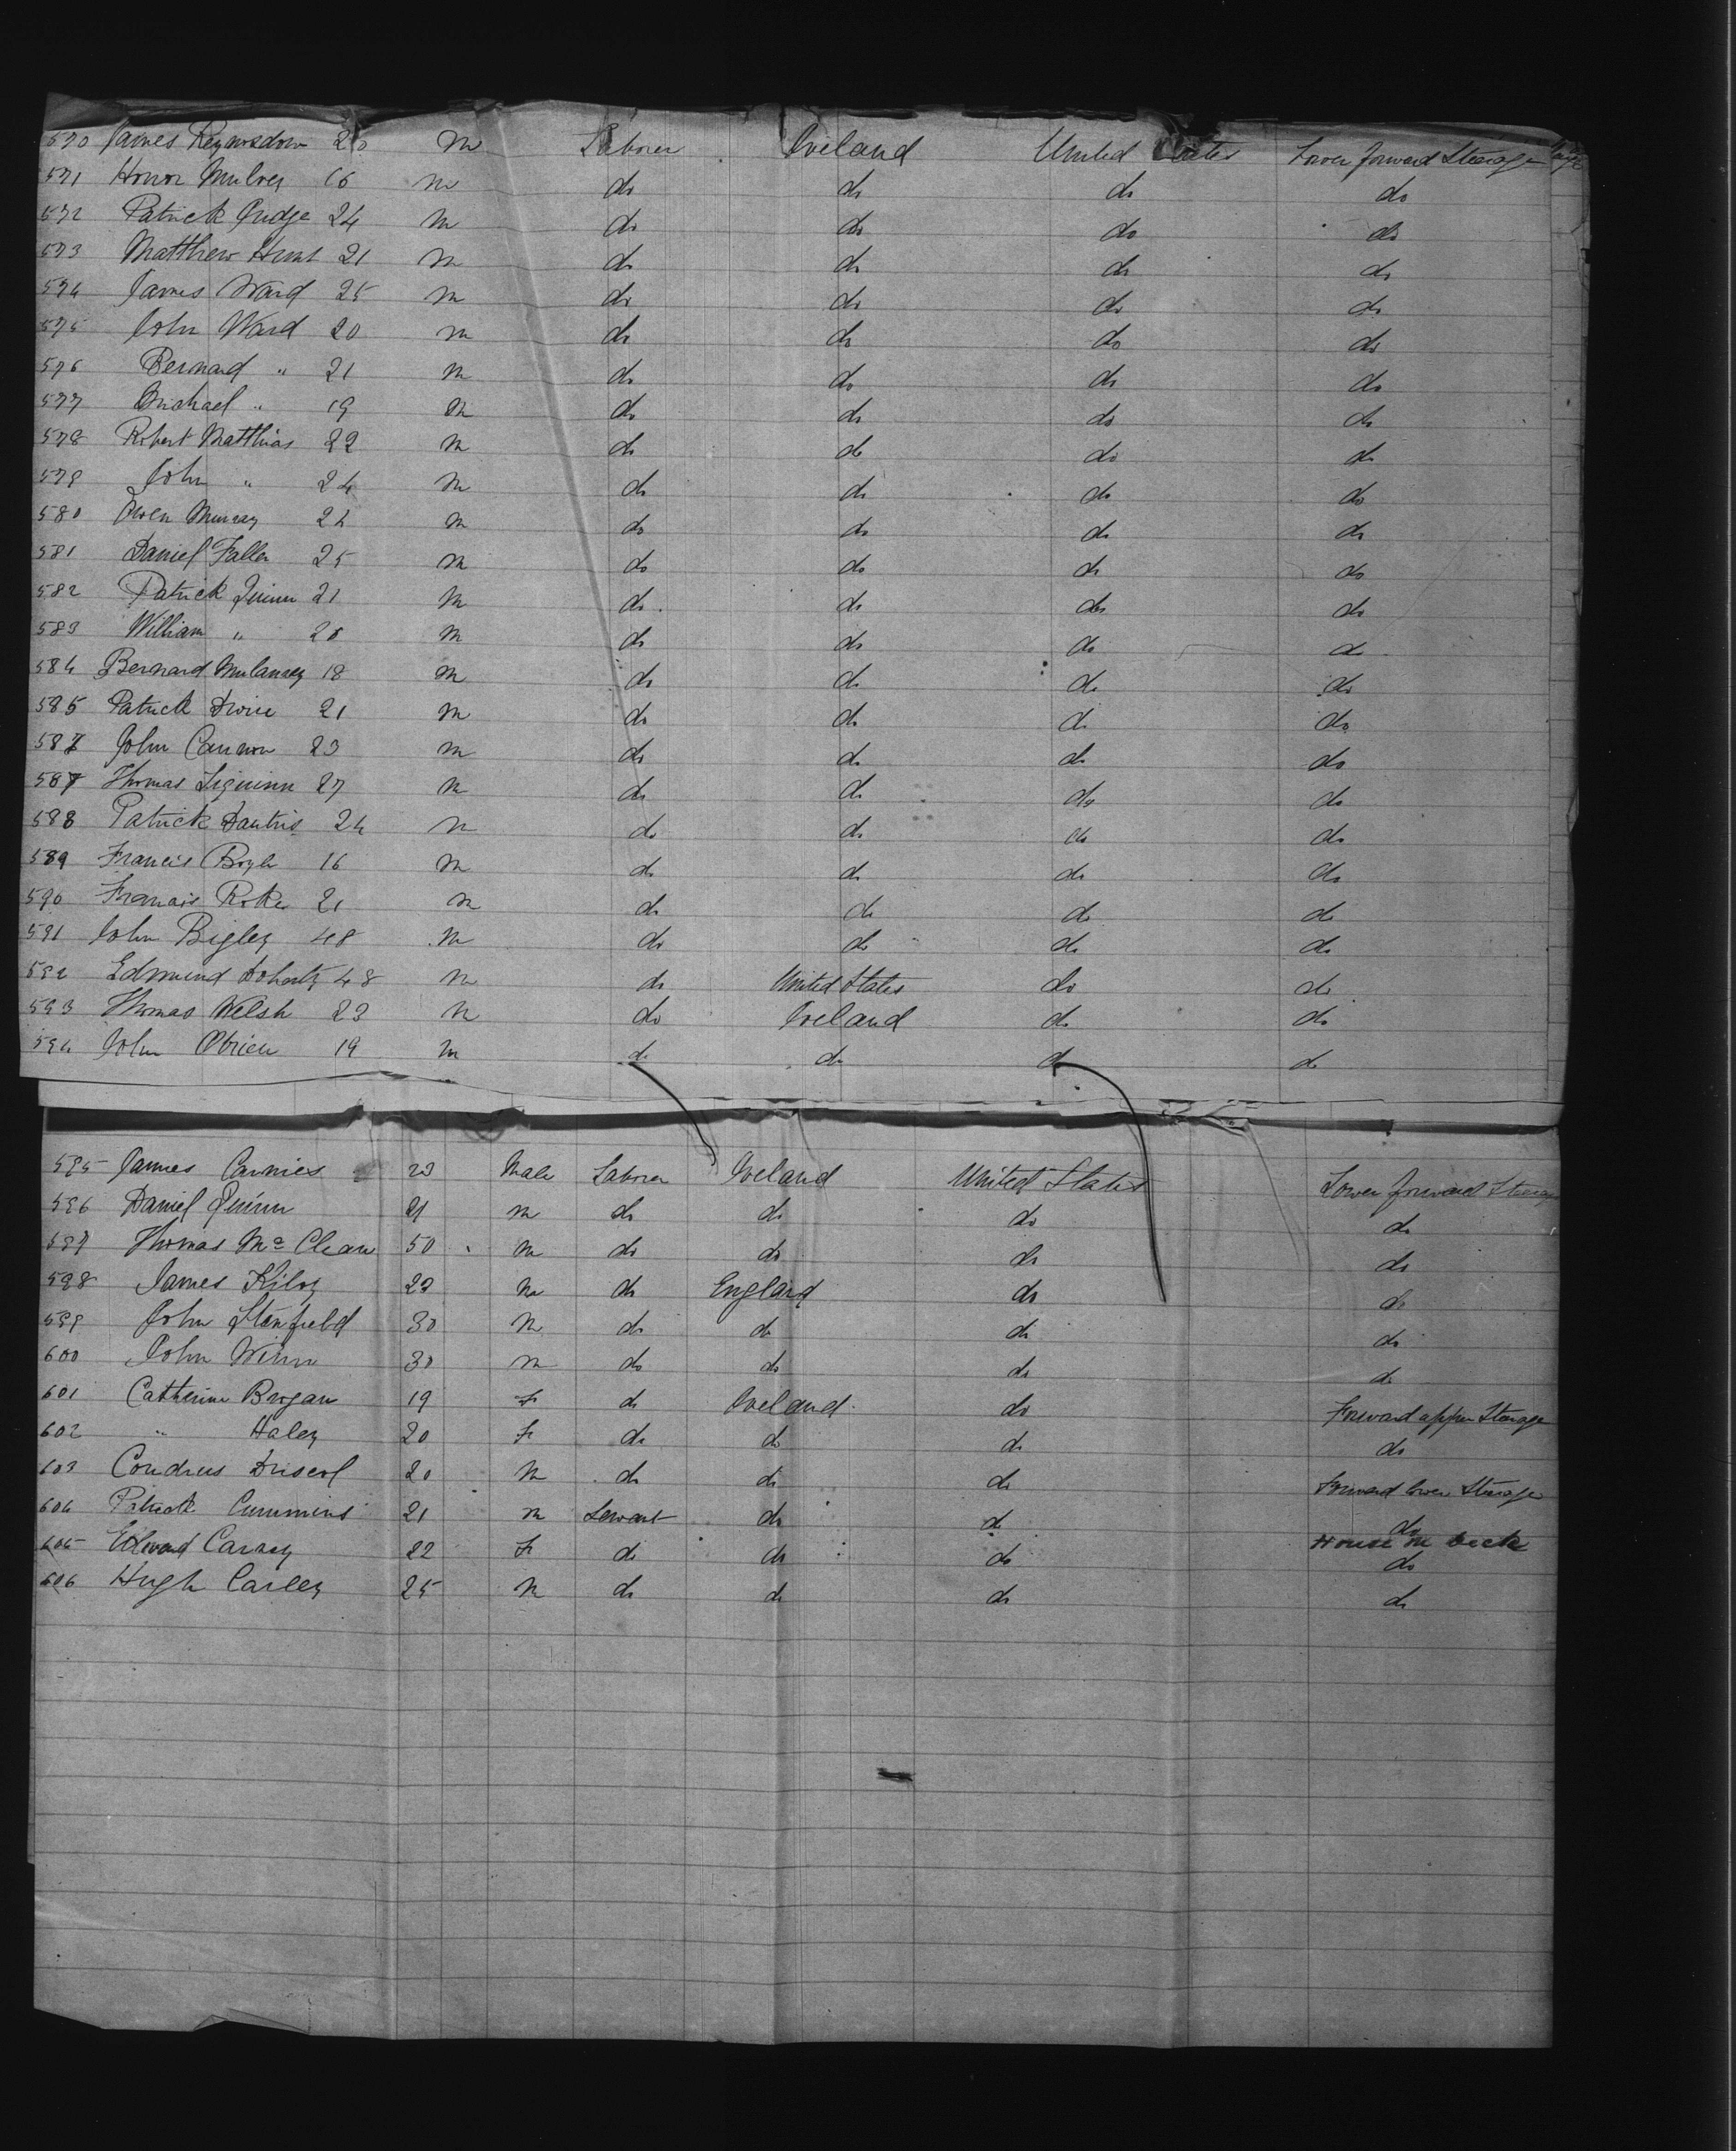 570 James Reynosdown 20 m Laborer Ireland United States Lower forward Steerage
571 Honor Mulvey 16 m do do do do
572 Patrick Judge 24 m do do do do
573 Matthew Hunt 21 m do do do do
574 James Ward 25 m do do do do
575 John Ward 20 m do do do do
576 Bernard " 21 m do do do do
577 Michael " 19 m do do do do
578 Robert Matthias 22 m do do do do
579 John " 24 m do do do do
580 Owen Murray 24 m do do do do
581 Daniel Fallen 25 m do do do do
582 Patrick Quinn 21 m do do do do
583 William " 20 m do do do do
584 Bernard Mulanney 18 m do do do do
585 Patrick Divire 21 m do do do do
587 John Cannon 23 m do do do do
587 Thomas Liquinn 27 m do do do do
588 Patrick 24 m do do do do
589 Francis Boyle 16 m do do do do
590 Francis Roke 21 m do do do do
591 John Bigley 48 m do do do do
592 Edmund Doherty 48 m do United States do do
593 Thomas Welsh 23 m do Ireland do do
594 John Obrien 19 m do do do do
595 James Carnies 23 Male Laborer Ireland United States Lower forward Steerage
596 Daniel Quinn 21 m do do do do
597 Thomas Mc Clean 50 m do do do do
598 James Kiloy 22 m do England do do
599 John Stanfield 30 m do do do do
600 John Winn 30 m do do do do
601 Catherine Brogan 19 F do Ireland do Forward upper Steerage
602 " Haley 20 F do do do do
603 Condrus Driscol 20 m do do do Forward lower Steerage
604 Patrick Cummins 21 m Servant do do do
House on deck
605 Edward Carney 22 F do do do do
606 Hugh Carley 25 m do do do do